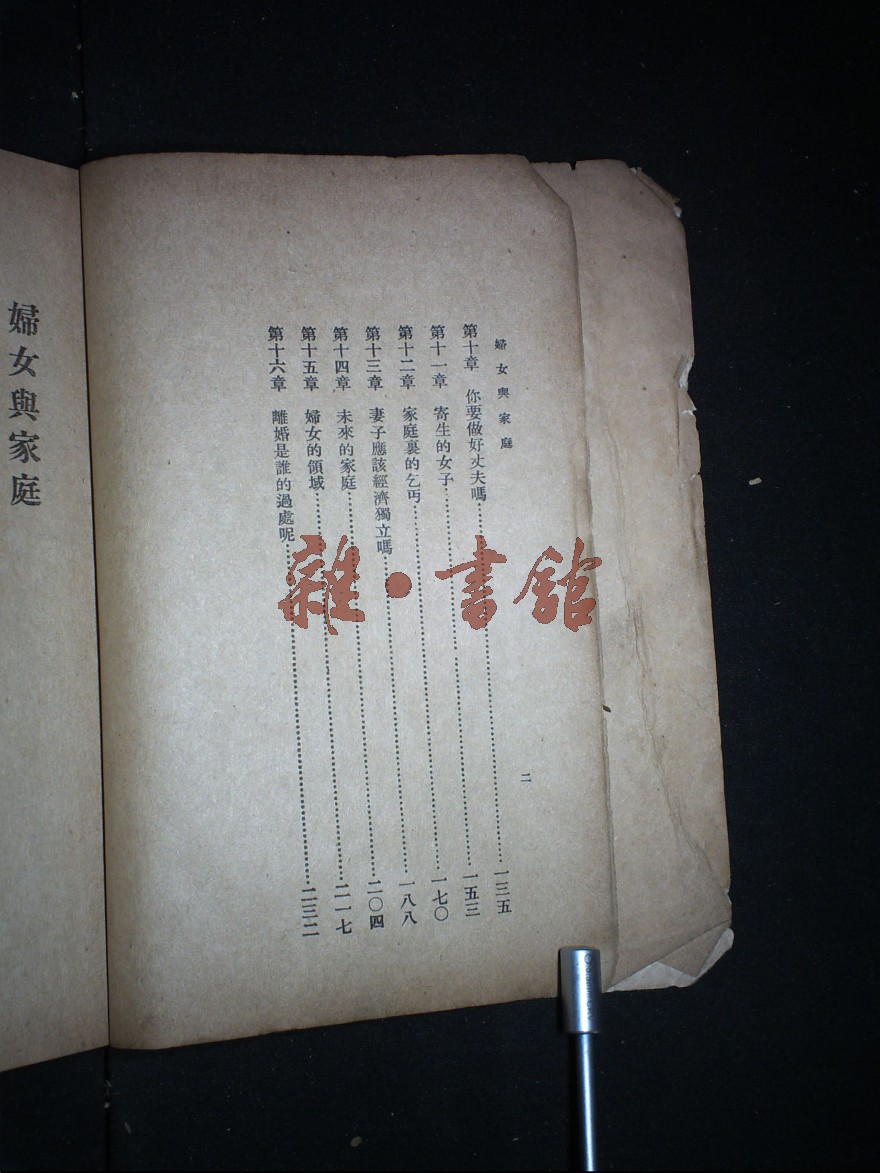 婦女與家庭
第十章 你要做好丈夫嗎……一三五
第十一章 寄生的女子……一五三
第十二章 家庭裏的乞丐……一七〇
第十三章 妻子應該經濟獨立嗎……一八八
第十四章 未來的家庭……二〇四
第十五章 婦女的領域……二一七
第十六章 離婚是誰的過處呢……二三二
二
婦女與家庭
雜·書館